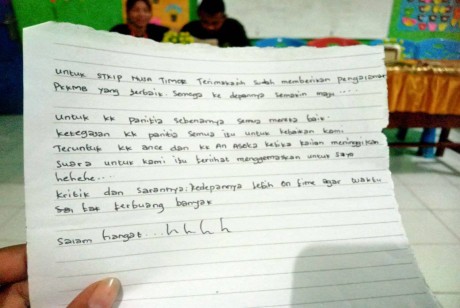 Untuk STKIP NUSA TIMOR Terimakasih sudah memberikan pengalaman
PKKMB yang terbaik semoga ke depannya semakin maju ....
Untuk kk panitia sebenarnya semua mereka baik.
ketegasan kk panitia semua itu untuk kebaikan kami
Teruntuk kk ance dan kk An Aseka ketika kalian meninggikan
suara untuk kami itu terlihat menggemaskan untuk saya
hehehe...
kritik dan sarannya: kedepannya lebih on time agar waktu
tak terbuang banyak
salam hangat...